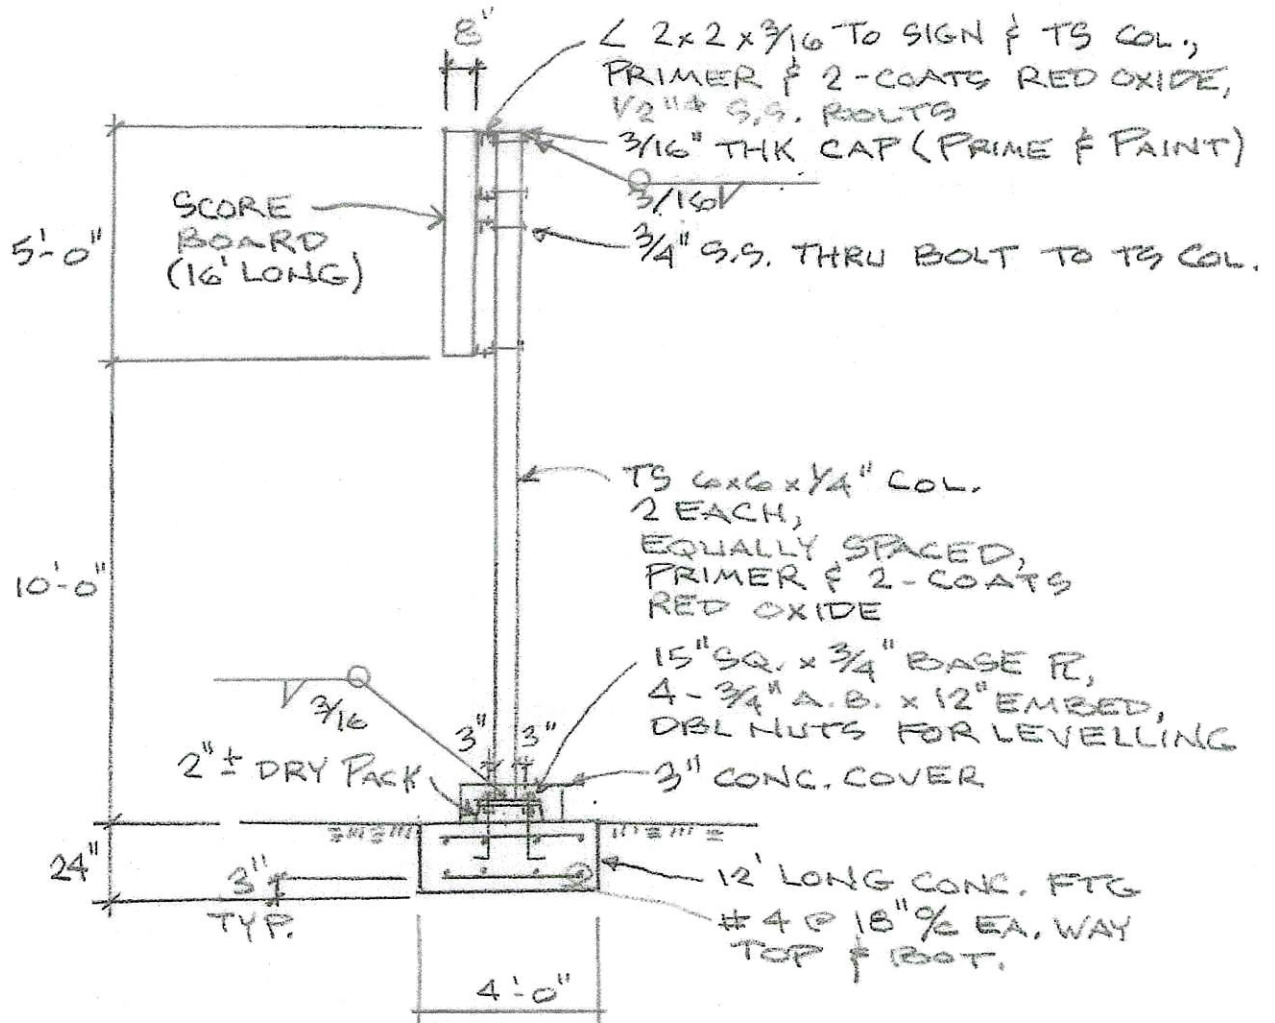 8"
∠ 2x2x3/16 TO SIGN & TS COL.,
PRIMER & 2-COATS RED OXIDE,
1/2"φ S.S. BOLTS
3/16" THK CAP (PRIME & PAINT)
3/16
SCORE
BOARD
(16' LONG)
5'-0"
3/4" S.S. THRU BOLT TO TS COL.
TS 6x6x1/4" COL.
2 EACH,
EQUALLY SPACED,
PRIMER & 2-COATS
RED OXIDE
10'-0"
15" SQ. x 3/4" BASE PL,
4-3/4" A.B. x 12" EMBED,
DBL NUTS FOR LEVELLING
3/16
3" 3"
2"± DRY PACK
3" CONC. COVER
24"
3"
TYP.
12' LONG CONC. FTG
#4 @ 18" O/C EA. WAY
TOP & BOT.
4'-0"